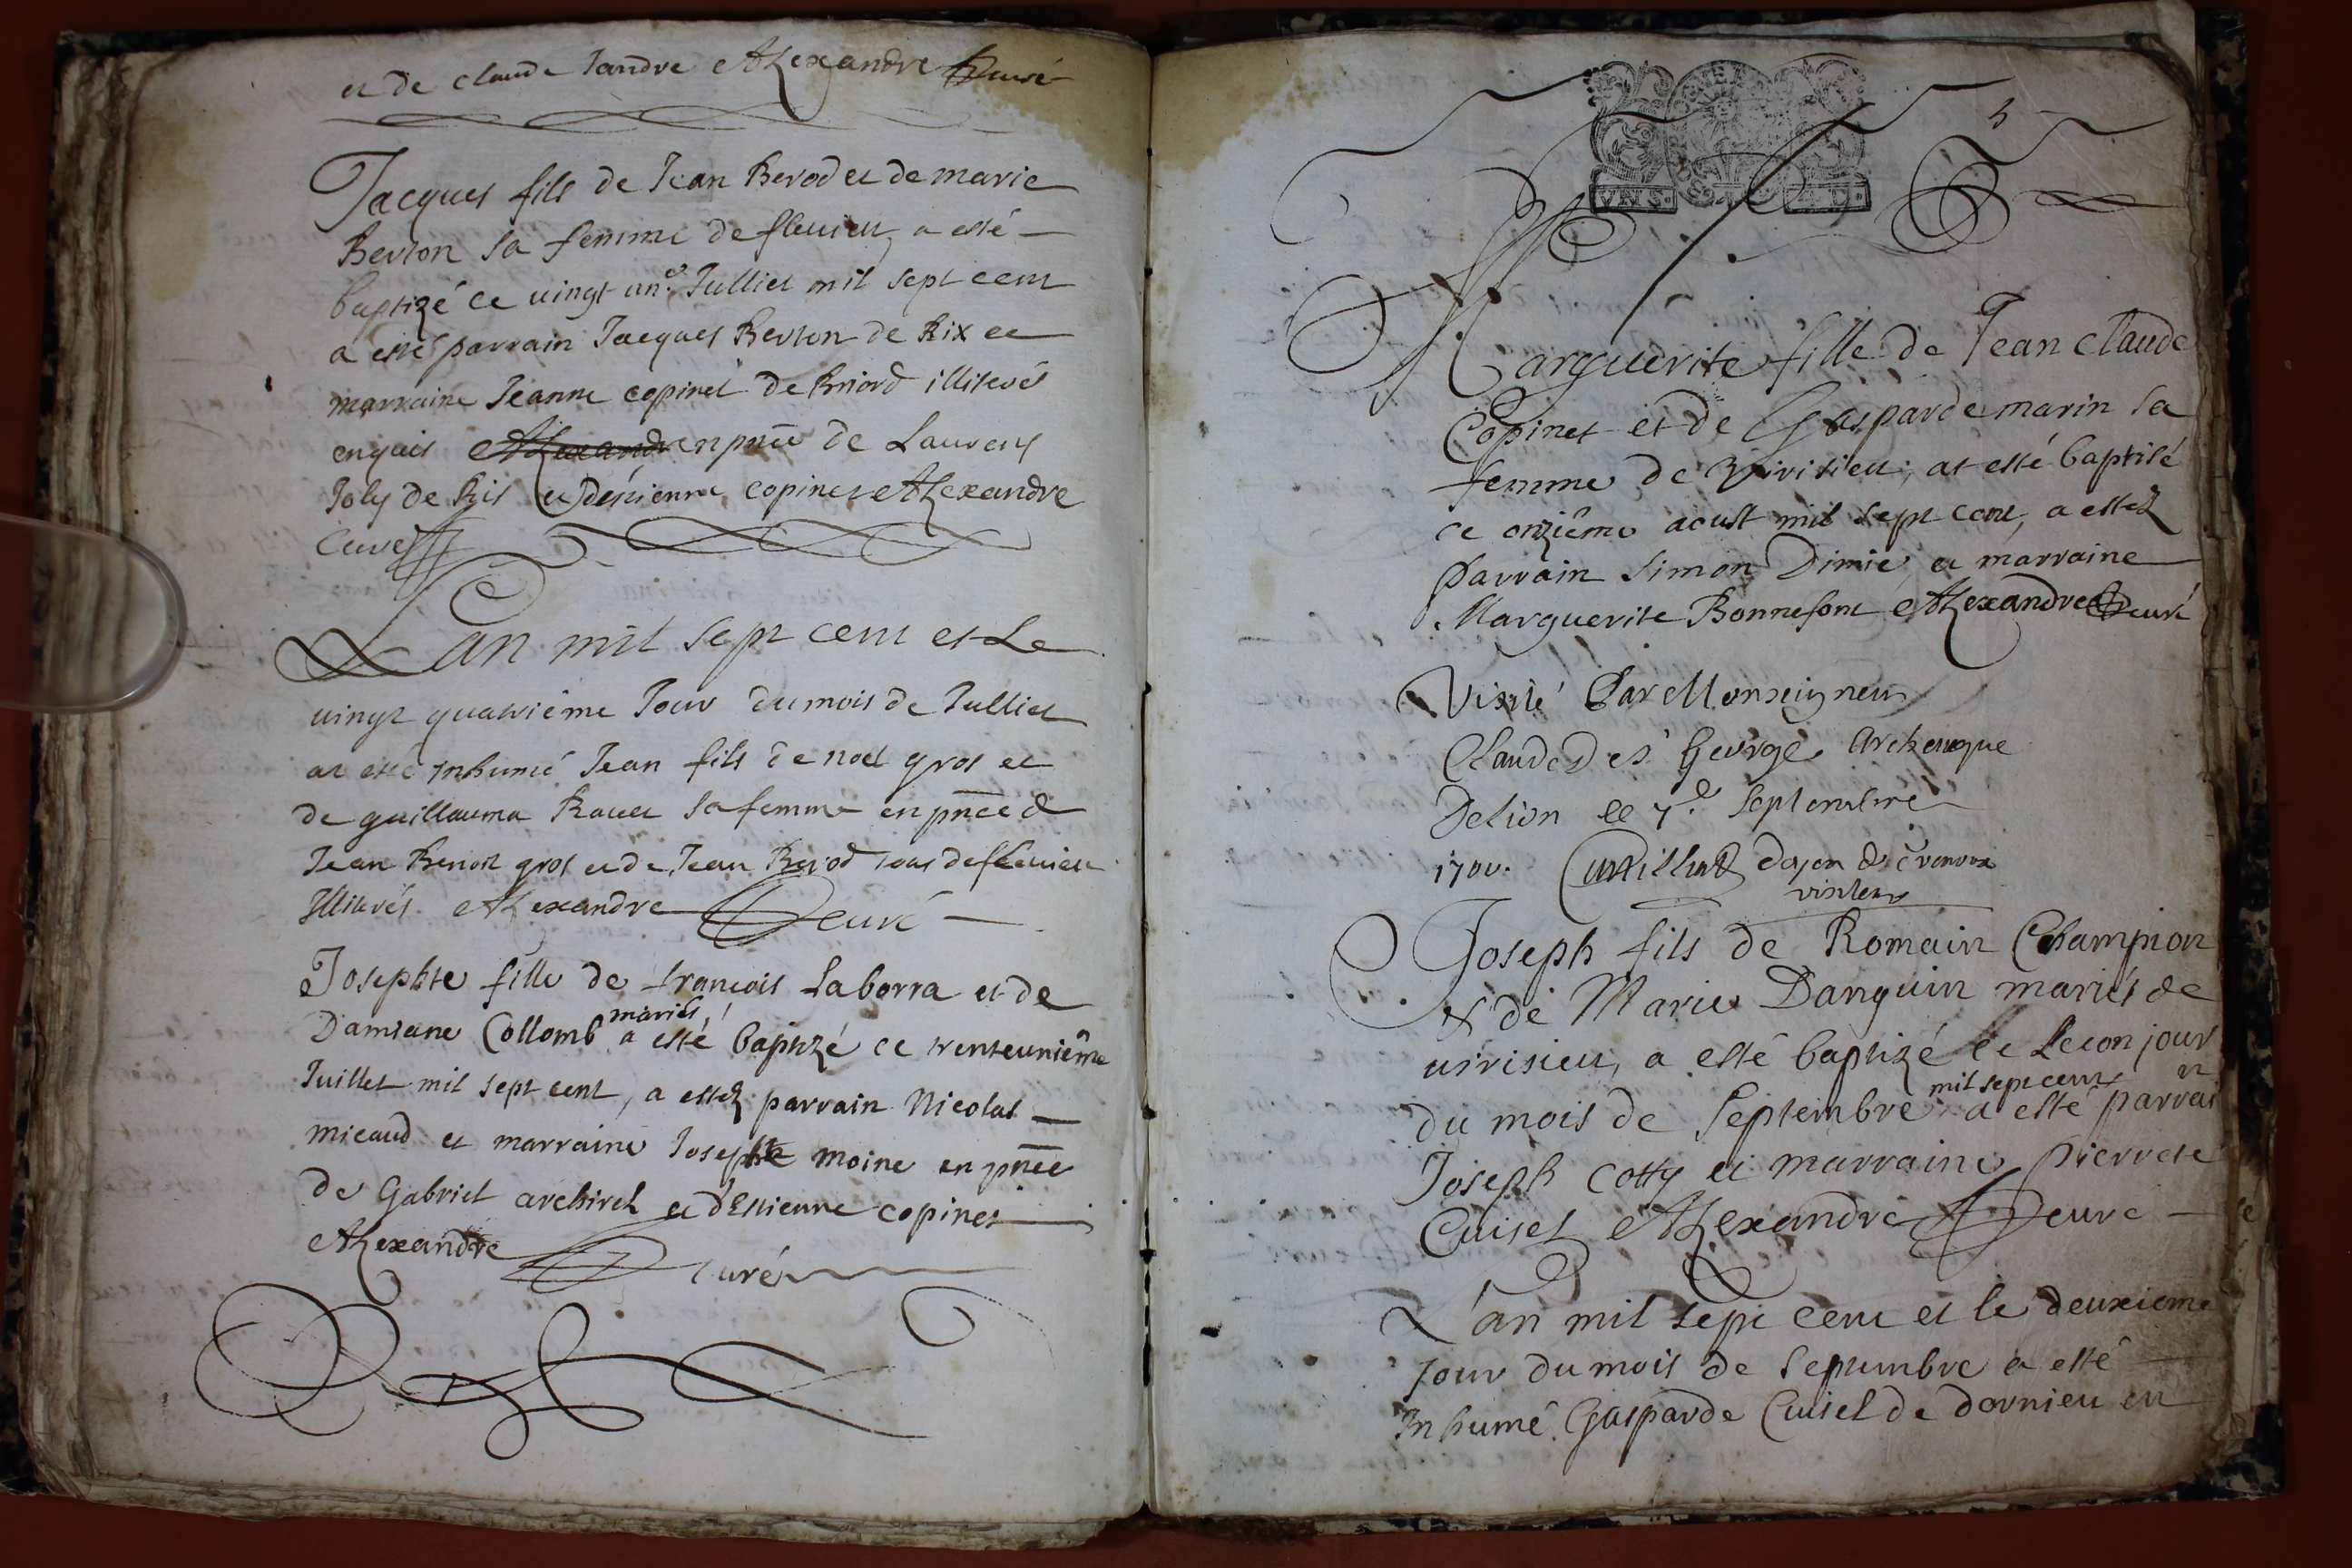 et de claude Jandre Alexandre curé
Jacques fils de Jean Berod et de marie
Berton sa femme de fleurieu a esté
baptizé ce vingt un.e Julliet mil sept cent
a esté parrain Jacques Berton de Rix et
marraine Jeanne copinet de briord illiterés
enquis Alexandre en pñce de Laurens
Joly de Rix et d'estienne copinet Alexandre
Curé
L'an mil sept cent et Le
vingt quatrième Jour du mois de Julliet
at esté Inhumé Jean fils de noel gros et
de guillauma Ravet sa femme en pñce de
Jean Benoit gros et de Jean Berod tous de fleurieu
Illiterés. Alexandre curé
Josephte fille de francois Laborra et de
Damiane Collomb mariés, a esté baptizé ce trenteunième
Juillet mil sept cent, a estez parrain Nicolas
micaud et marraine Josephte moine en pñce
de Gabriel archirel et d'Estienne copinet
Alexandre curé
5
Marguerite fille de Jean claude
Copinet et de Gasparde marin sa
femme de virisieu, at esté baptisé
ce onzième aoust mil sept cent, a estez
parrain Simon Dimie et marraine
Marguerite Bonnefont Alexandre curé
Visité Par Monseigneur
Claude de st George Archeveque
De Lion le 7.e Septembre
1700. doyen de
visiteur
Joseph fils de Romain Champion
& de Marie Danguin mariés de
virisieu, a esté baptizé le secon jour
du mois de Septembre mil sept cent a esté parrain
Joseph cotty et marraine pierrete
Cuiset Alexandre curé
L'an mil sept cent et le deuxième
jour du mois de Septembre a esté
Inhumé Gasparde Cuisel de dornieu en